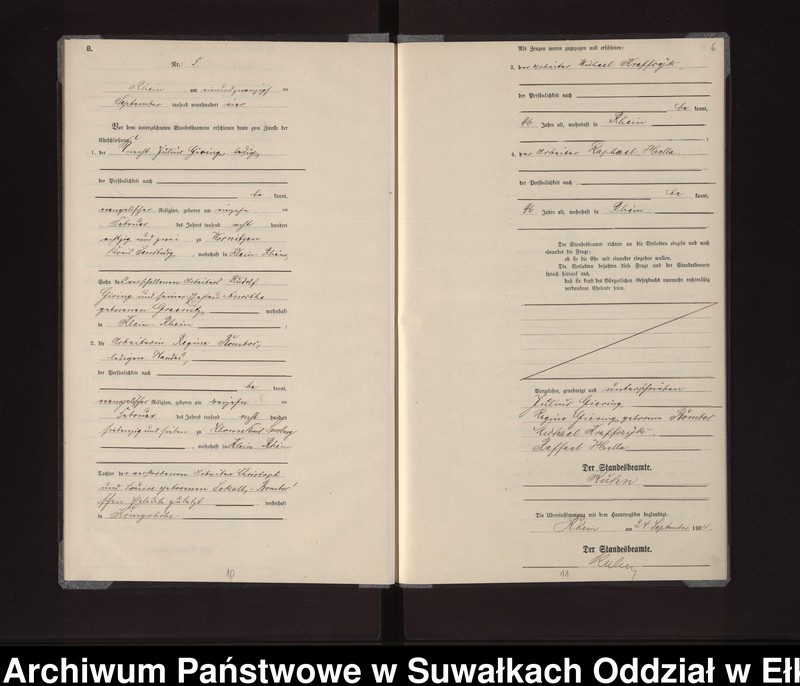 8.
Nr. 5
Rhein am einundzwanzigsten
September tausend neunhundert vier
Vor dem unterzeichneten Standesbeamten erschienen heute zum Zwecke der
Eheschließung:
1. der Knecht Julius Giering, ledig,
der Persönlichkeit nach
be kannt,
evangelischer Religion, geboren am
Februar des Jahres tausend acht hundert
achtzig und zwei zu
Kreis Sensburg, wohnhaft in Klein Rhein,
Sohn des verstorbenen Arbeiters Rudolf
Giering und seiner Ehefrau
geborenen wohnhaft
in Klein-Rhein
2. die Arbeiterin Regine Kombor,
ledigen Standes,
der Persönlichkeit nach
be kannt,
evangelischer Religion, geboren am vierzehn
Februar des Jahres tausend acht hundert
siebenzig und sieben zu
, wohnhaft in Klein Rhein
Tochter der verstorbenen Arbeiter Christoph
und Louise geborenen
Eheleute zuletzt wohnhaft
in Königshöhe
10
6
Als Zeugen waren zugezogen und erschienen:
3. der Arbeiter Michael
der Persönlichkeit nach
be kannt,
46 Jahre alt, wohnhaft in Rhein
;
4. der Arbeiter Raphael
der Persönlichkeit nach
be kannt,
46 Jahre alt, wohnhaft in Rhein
Der Standesbeamte richtete an die Verlobten einzeln und nach
einander die Frage:
ob sie die Ehe mit einander eingehen wollen.
Die Verlobten bejahten diese Frage und der Standesbeamte
sprach hierauf aus,
daß sie kraft des Bürgerlichen Gesetzbuchs nunmehr rechtmäßig
verbundene Eheleute seien.
Vorgelesen, genehmigt und unterschrieben
Julius Giering
Regine Giering geborene Kombor
Michael
Raffael
Der Standesbeamte.
Kuhn
Die Übereinstimmung mit dem Hauptregister beglaubigt.
Rhein am 21 September 1904.
Der Standesbeamte.
Kuhn
11
Archiwum Państwowe w Suwałkach Oddział w Ełk